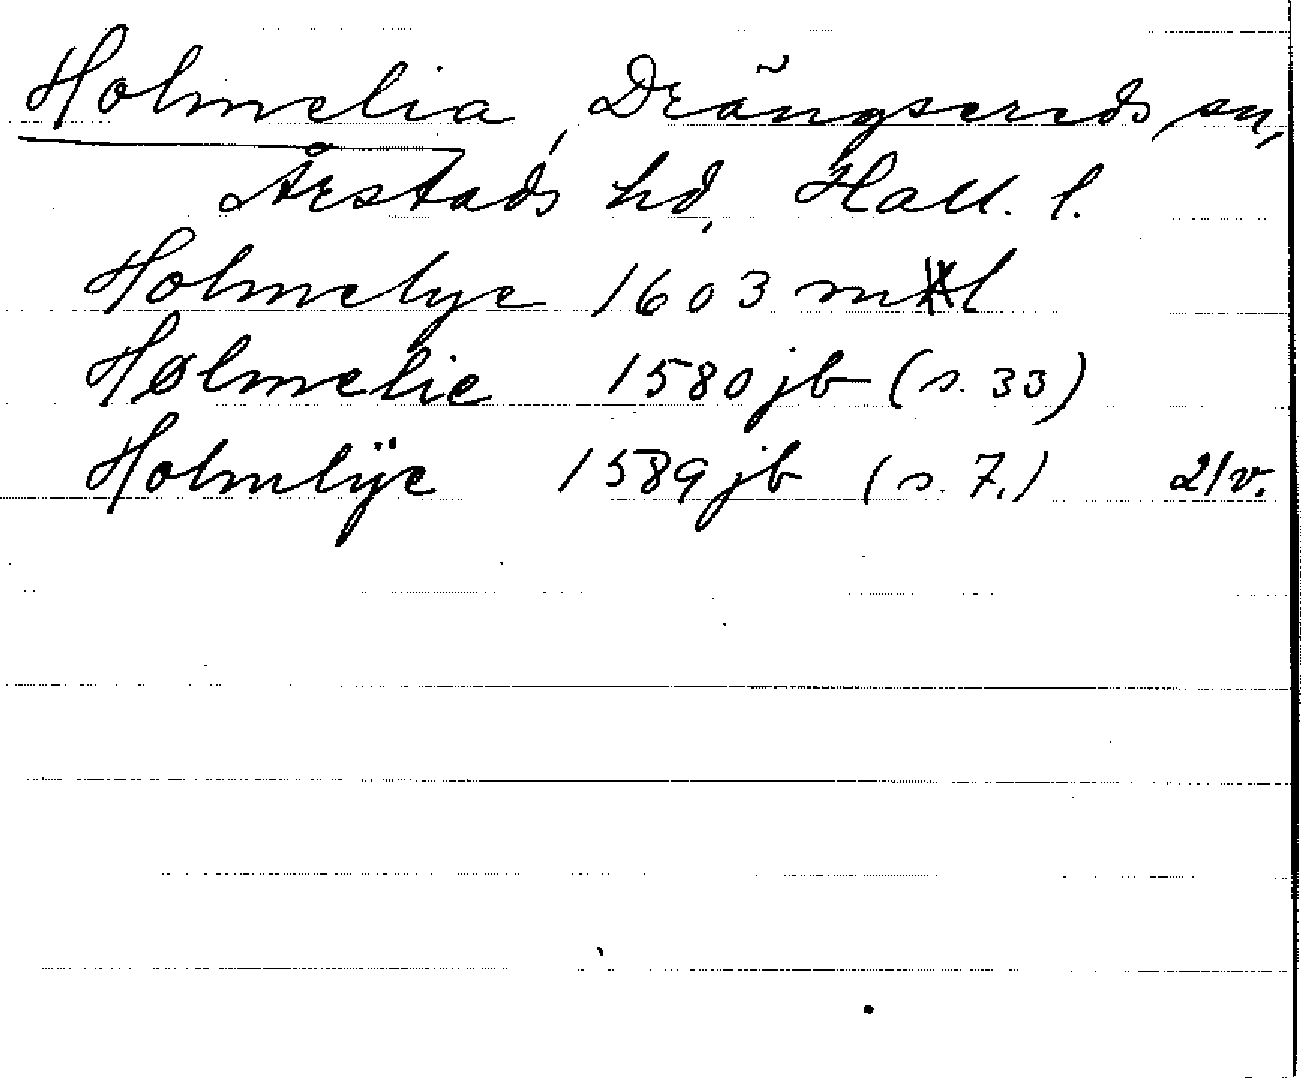 Holmelia, Drängsereds sn,
Årstads hd, Hall. l.
Holmelye 1603 ml
Hølmelie 1580 jb (s. 33)
Holmlÿe 1589 jb (s. 7.) 21v.